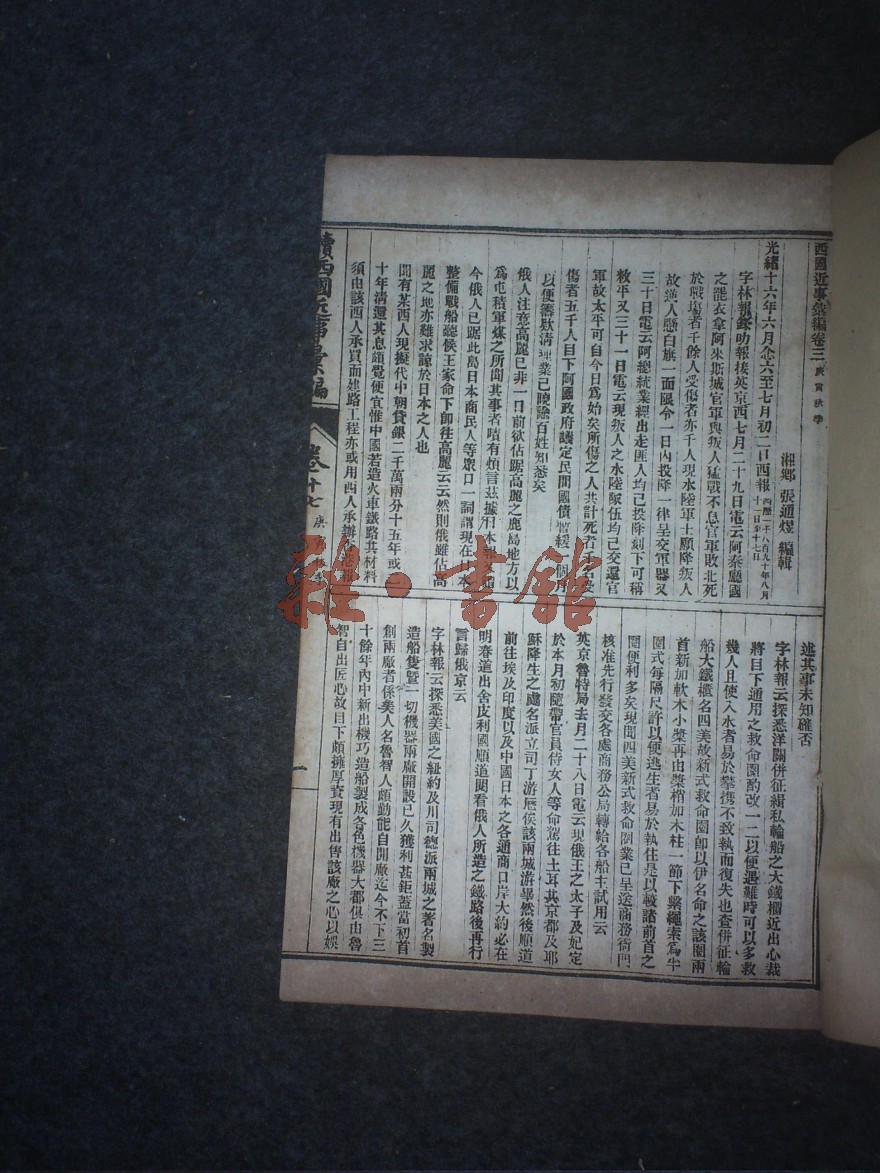 西國近事彙編卷三 庚寅秋季
湘鄉 張通煜 編輯
光緒十六年六月念六至七月初二日西報 西曆一千八百九十年八月十一日至十七日
字林報錄叻報接英京西七月二十九日電云阿秦廳國
之罷衣拿阿米斯城官軍與叛人猛戰不息官軍敗北死
於戰場者千餘人受傷者亦千人現水陸軍士願降叛人
故逆人懸白旗一面限令一日內投降一律呈交軍器又
三十日電云阿總統業經出走匪人均已投降刻下可稱
敉平又三十一日電云現叛人之水陸隊伍均已交還官
軍故太平可自今日為始矣所傷之人共計死者千名受
傷者五千人目下阿國政府議定民間國債暫緩一個月
以便籌欵清理業已曉諭百姓知悉矣
俄人注意高麗已非一日前欲佔踞高麗之鹿島地方以
為屯積軍煤之所聞其事者嘖有煩言茲據日本報
今俄人已踞此島日本商民人等眾口一詞謂現在日本
整備戰船聽候王家命下即往高麗云云然則俄雖佔高
麗之地亦難求諒於日本之人也
聞有某西人現擬代中朝貸銀二千萬兩分十五年或二
十年清還其息頗覺便宜惟中國若造火車鐵路其材料
須由該西人承買而建路工程亦或用西人承辦
述其事未知確否
字林報云探悉洋關併征緝私輪船之大鐵櫃近出心裁
將目下通用之救命圈酌改一二以便遇難時可以多救
幾人且使入水者易於攀携不致執而復失也查併征輪
船大鐵櫃名四美故新式救命圈即以伊名命之該圈兩
首新加軟木小槳再由槳梢加木柱一節下繫繩索為半
圈式每隔尺許以便逃生者易於執住是以較諸前首之
圈便利多矣現聞四美新式救命圈業已呈送商務衙門
核准先行發交各處商務公局轉給各船主試用云
英京魯特局去月二十八日電云現俄王之太子及妃定
於本月初隨帶官員侍女人等命駕往土耳其京都及耶
穌降生之處名派立司丁游歷俟該兩城游畢然後順道
前往埃及印度以及中國日本之各通商口岸大約必在
明春道出舍皮利國順道閱看俄人所造之鐵路後再行
言歸俄京云
字林報云探悉美國之紐約及川司德派兩城之著名製
造船隻暨一切機器兩廠開設已久獲利甚鉅蓋當初首
創兩廠者係美人名魯智人頗勤能自開廠迄今不下三
十餘年內中新出機巧造船製成各色機器大都俱由魯
智自出匠心故目下頗擁厚資現有出售該廠之心以娛
續西國近事彙編 卷十七 庚寅秋季 一
雜·書館